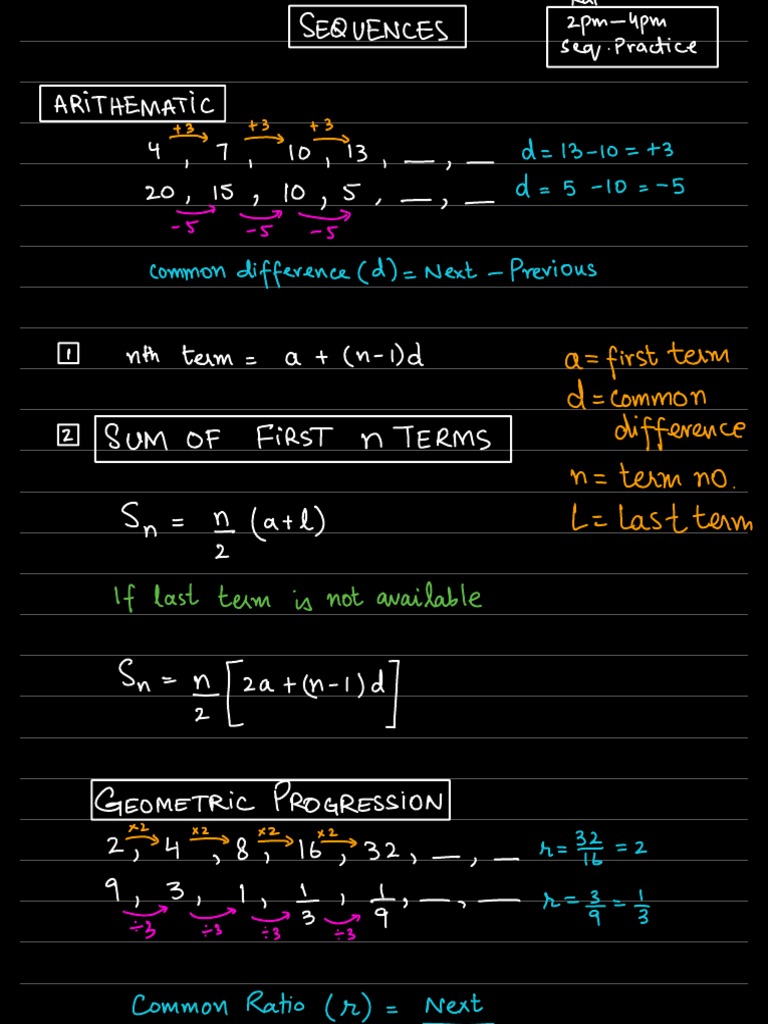 SEQUENCES
2pm-4pm
seq. Practice
ARITHEMATIC
+3 +3 +3
4, 7, 10, 13, __, __ d = 13-10 = +3
20, 15, 10, 5, __, __ d = 5 -10 = -5
-5 -5 -5
common difference (d) = Next - Previous
1 nth term = a + (n-1)d
a = first term
d = common
difference
n = term no.
L = Last term
2 SUM OF FIRST n TERMS
Sn = n/2 (a+l)
If last term is not available
Sn = n/2 [2a+(n-1)d]
GEOMETRIC PROGRESSION
×2 ×2 ×2 ×2
2, 4, 8, 16, 32, __, __ r = 32/16 = 2
9, 3, 1, 1/3, 1/9, __, __ r = 3/9 = 1/3
÷3 ÷3 ÷3 ÷3
Common Ratio (r) = Next